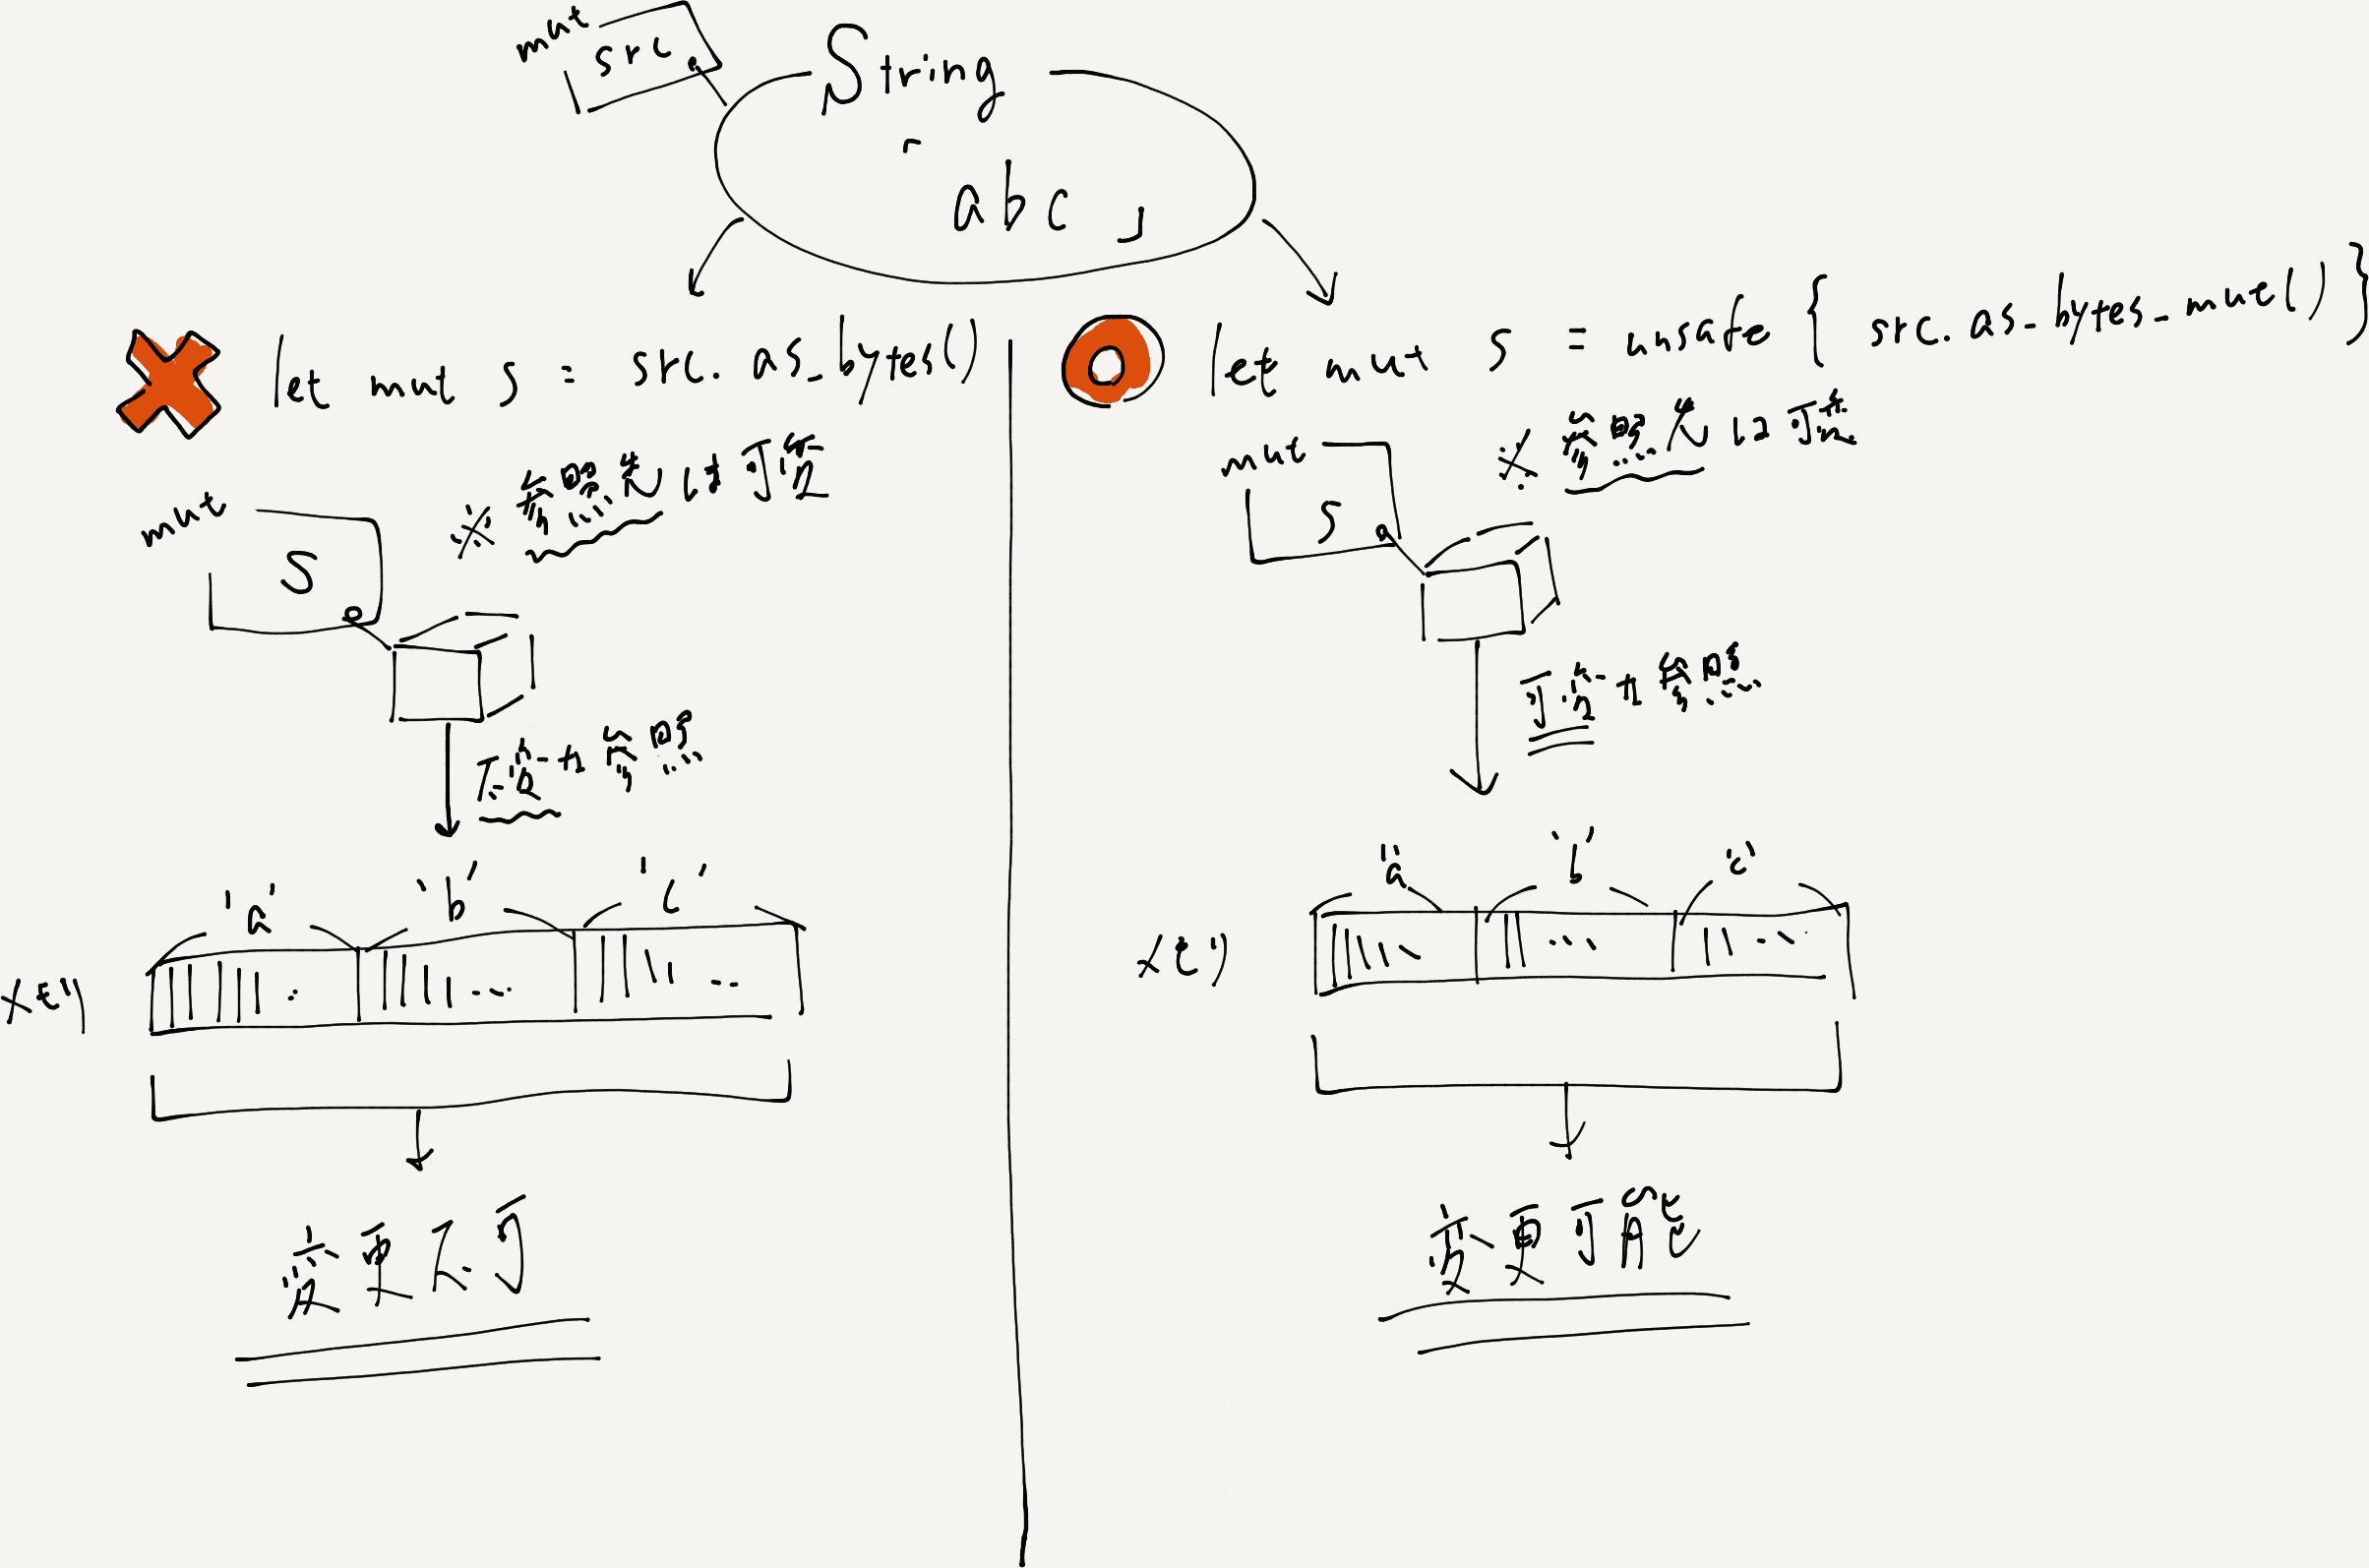 mut
src
String
「abc」
let mut s = src.as_bytes()
※ 参照先は可変
mut
S
不変な参照
'a' 'b' 'c'
メモリ
変更不可
let mut s = unsafe { src.as_bytes_mut() }
※ 参照先は可変
mut
s
可変な参照
'a' 'b' 'c'
メモリ
変更可能